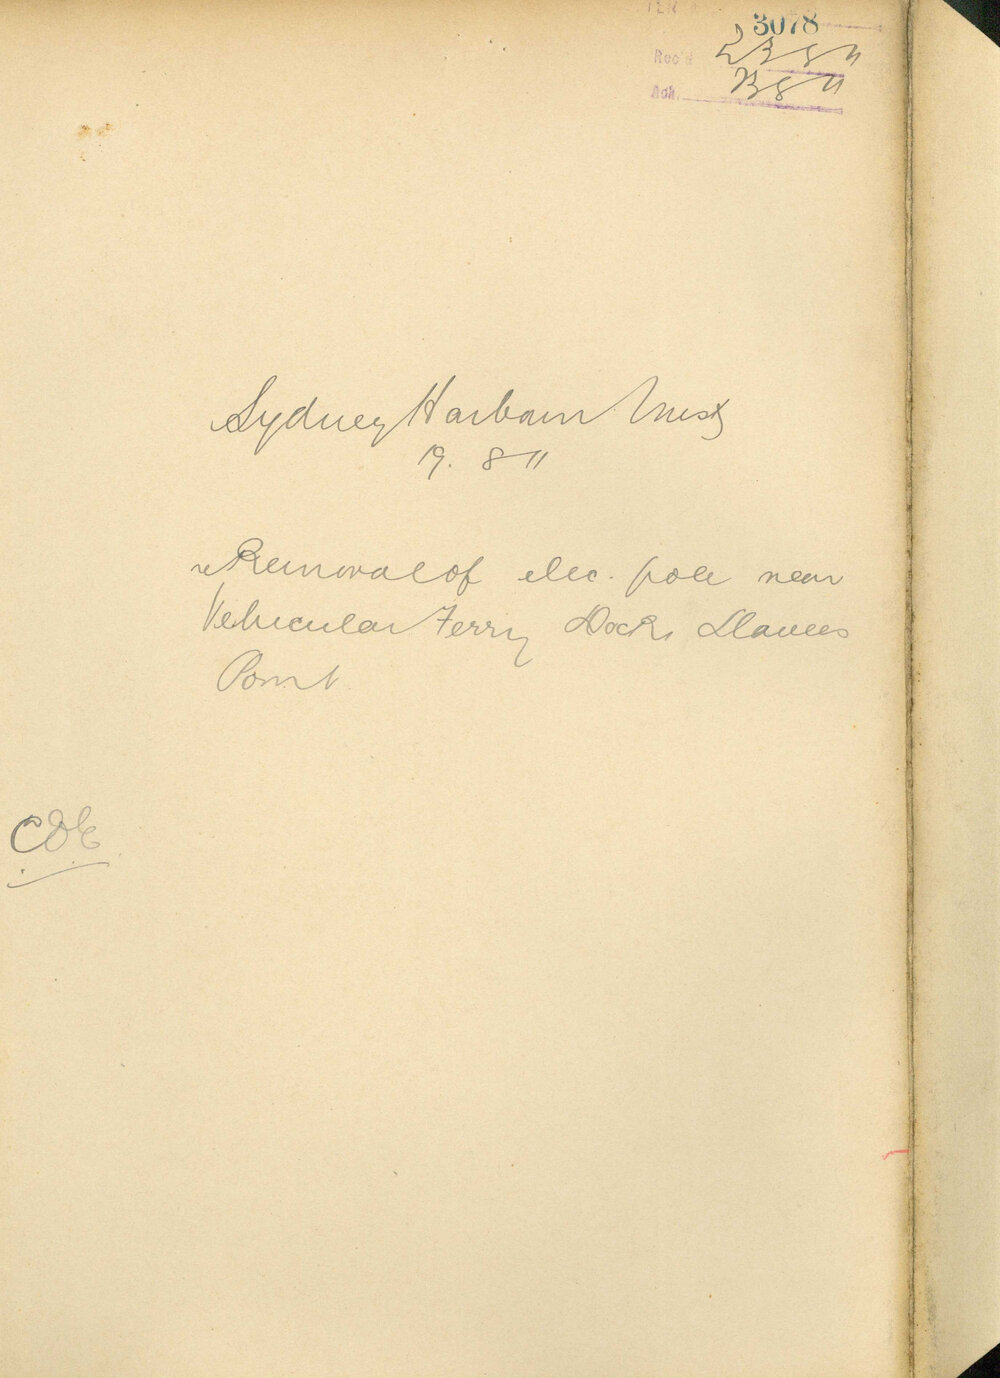 3078
Rec'd 23 8 11
Ack. 23 8 11
Sydney Harbour Trust
19. 8 11
re Removal of elec. pole near
Vehicular Ferry Docks Dawes
Point